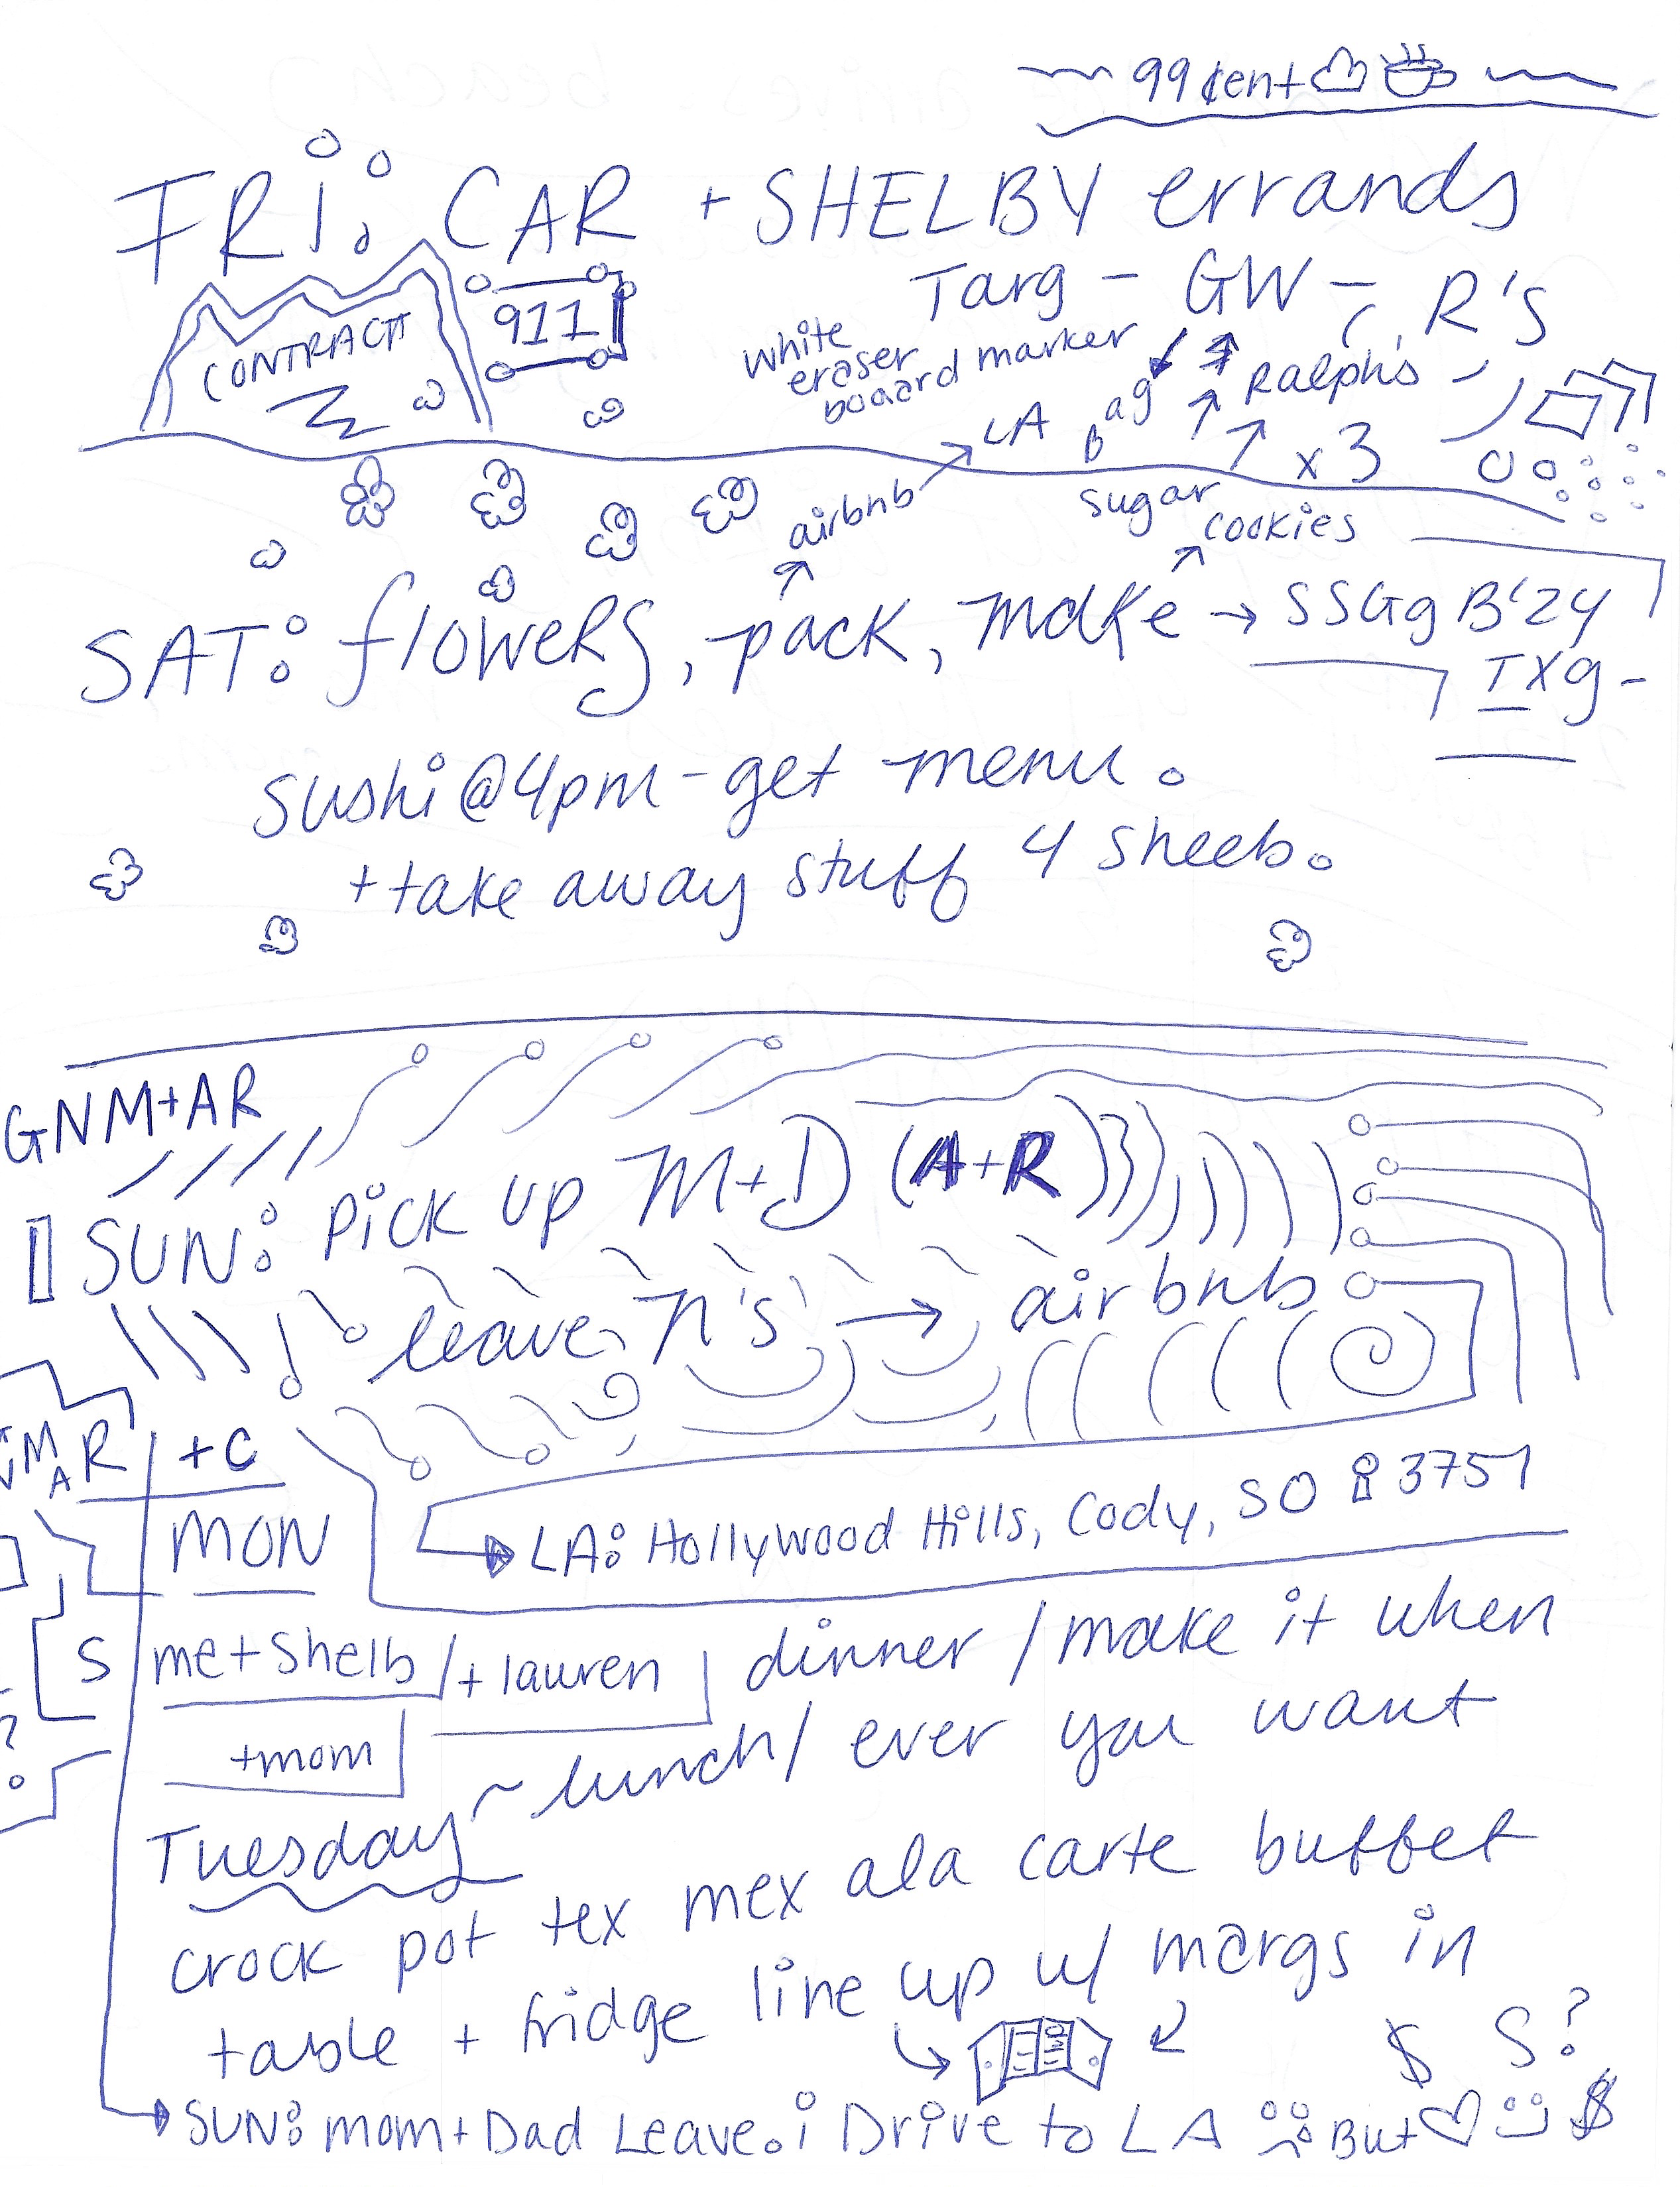 99 ¢ent
FRI: CAR + SHELBY errands
Targ - GW - R'S
CONTRACT
911
white
eraser
board marker
Bag
Ralph's
LA
x3
airbnb
sugar
cookies
SAT: flowers, pack, make → SSGgB'24
TXg-
sushi@4pm - get menu.
+take away stuff 4 sheeb.
GNM+AR
SUN: Pick up M+D (A+R)
leave n's → airbnb
R +C
MON
LA: Hollywood Hills, Cody, SO 3751
S me+Shelb/+lauren dinner / make it when
+mom ~ lunch/ ever you want
Tuesday
crock pot tex mex ala carte buffet
table + fridge line up w/ margs in
$ S?
SUN: mom+Dad Leave. i Drive to LA But $